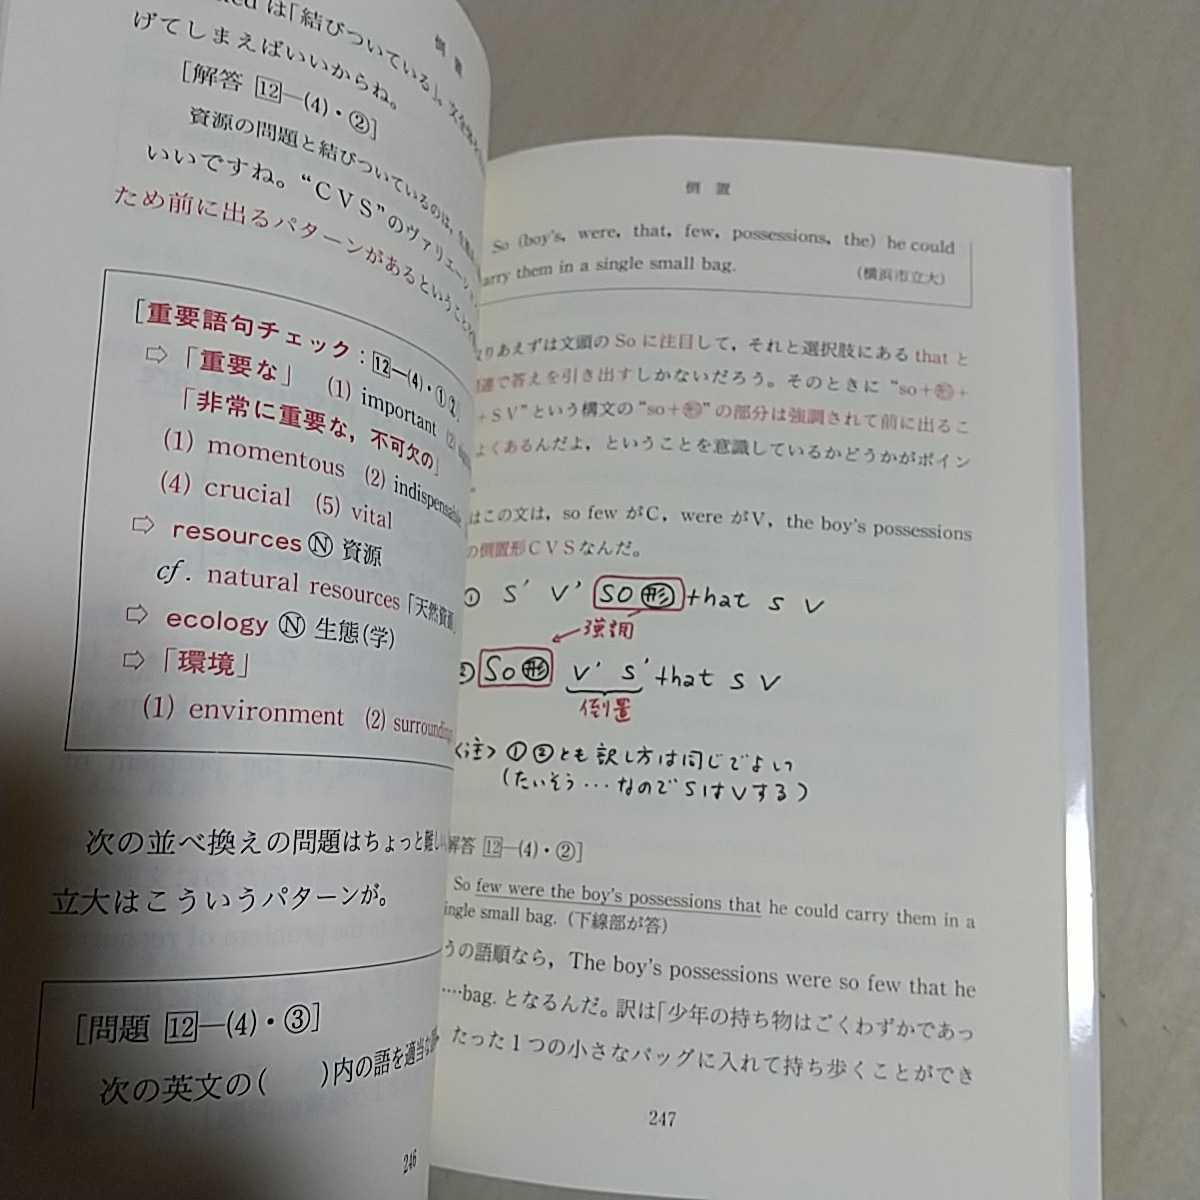 倒置
は「結びついている」。文を
げてしまえばいいからね。
[解答 12―(4)・②]
資源の問題と結びついているのは、
いいですね。“ＣＶＳ”のヴァリエーション
ため前に出るパターンがあるということ
[重要語句チェック：12―(4)・①②]
⇨「重要な」 (1) important (2)
「非常に重要な，不可欠の」
(1) momentous (2) indispensable
(4) crucial (5) vital
⇨ resources Ⓝ 資源
cf. natural resources「天然資源」
⇨ ecology Ⓝ 生態(学)
⇨「環境」
(1) environment (2) surroundings
次の並べ換えの問題はちょっと難し
立大はこういうパターンが。
[問題 12―(4)・③]
次の英文の( )内の語を適当な
246
倒置
So (boy's, were, that, few, possessions, the) he could
arry them in a single small bag. (横浜市立大)
りあえずは文頭の So に注目して，それと選択肢にある that と
連で答えを引き出すしかないだろう。そのときに “so＋㊒＋
＋ＳＶ”という構文の“so＋形”の部分は強調されて前に出るこ
よくあるんだよ，ということを意識しているかどうかがポイン
。
はこの文は，so few がＣ，were がＶ，the boy's possessions
の倒置形ＣＶＳなんだ。
① S′ V′ so形 that s v
強調
② So形 V′ S′ that s v
倒置
<注> ①②とも訳し方は同じでよい
(たいそう…なのでSはVする)
解答 12―(4)・②]
So few were the boy's possessions that he could carry them in a
ingle small bag. (下線部が答)
うの語順なら，The boy's possessions were so few that he
……bag. となるんだ。訳は「少年の持ち物はごくわずかであっ
たった１つの小さなバッグに入れて持ち歩くことができ
247